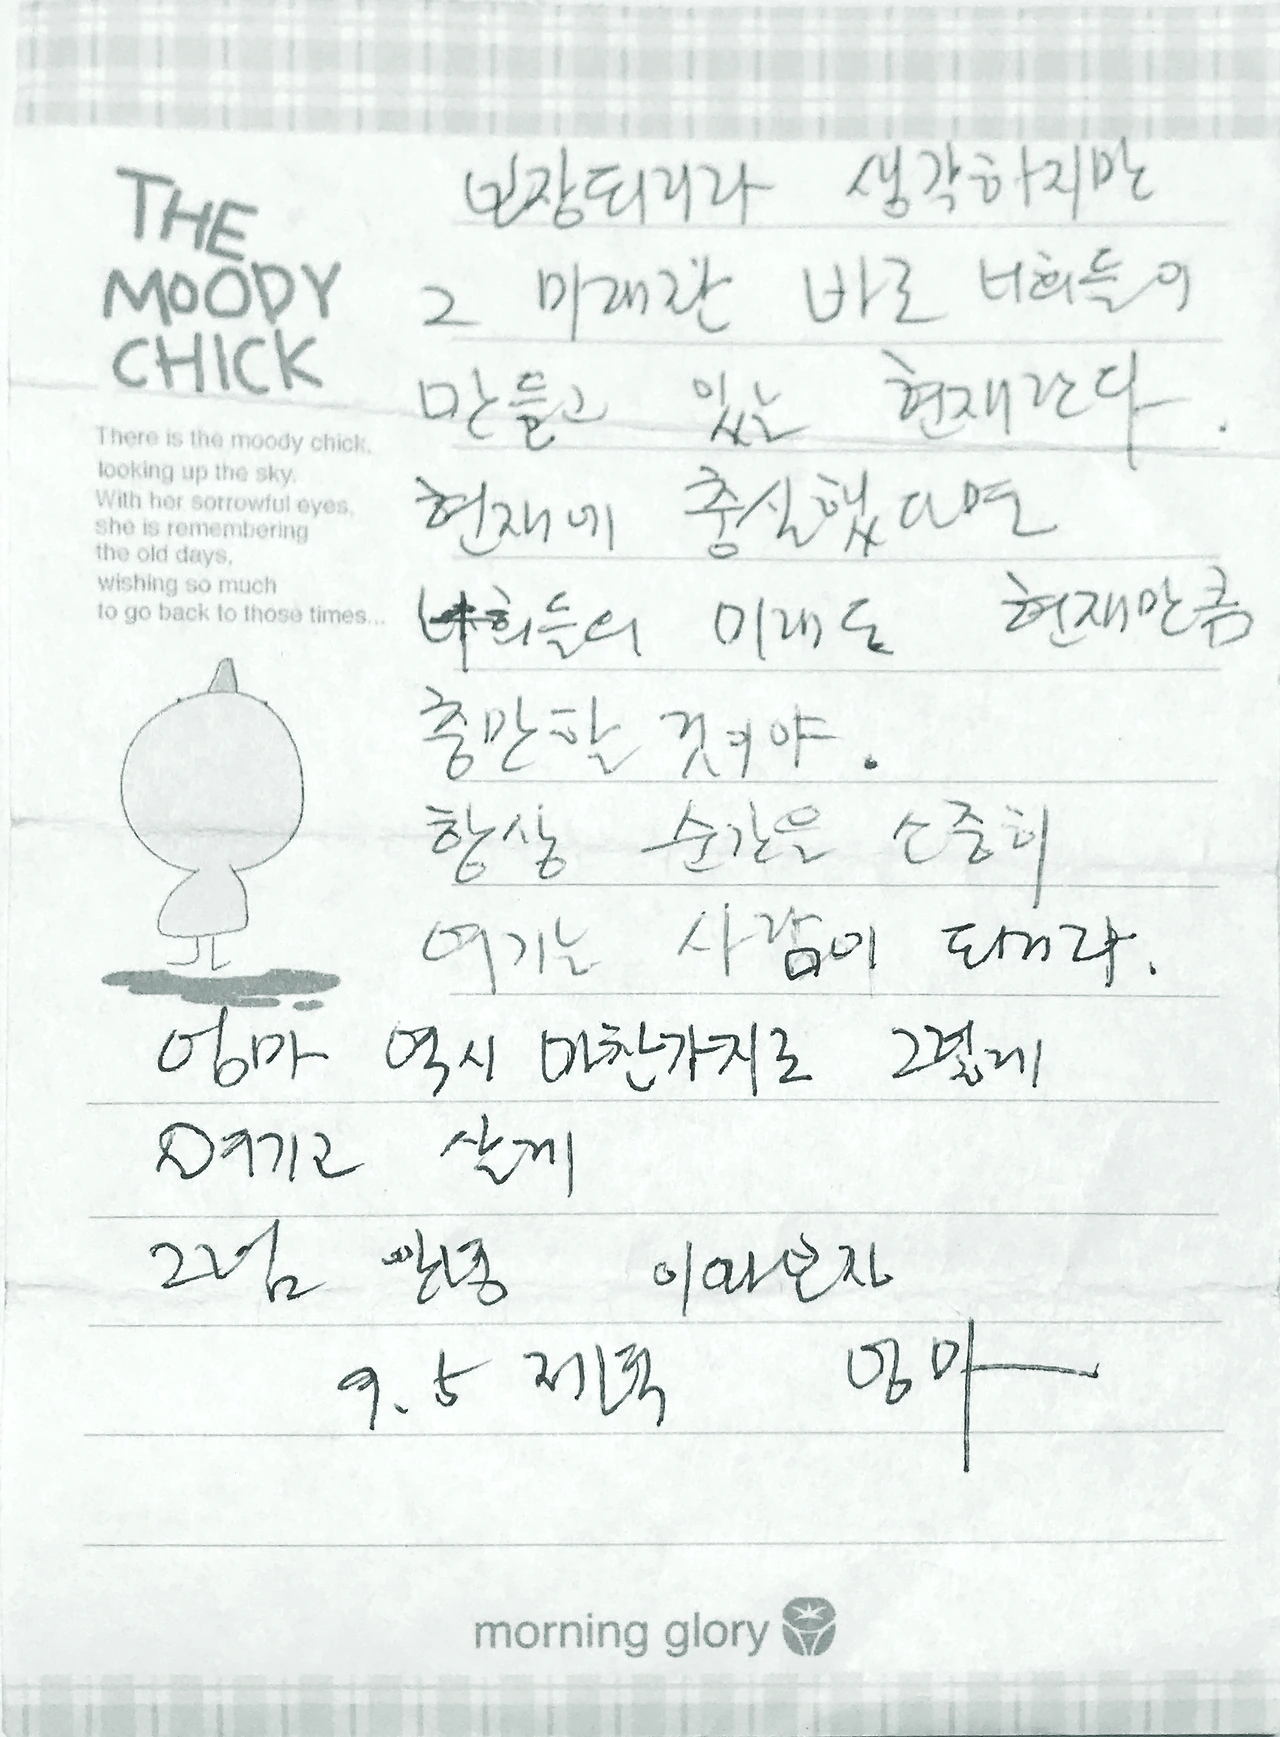 THE
MOODY
CHICK
There is the moody chick,
looking up the sky.
With her sorrowful eyes,
she is remembering
the old days,
wishing so much
to go back to those times...
보장되리라 생각하지만
그 미래란 바로 너희들이
만들고 있는 현재란다.
현재에 충실했다면
너희들의 미래도 현재만큼
충만할 것이야.
항상 순간을 소중히
여기는 사람이 되거라.
엄마 역시 마찬가지로 그렇게
여기고 살께
그럼 안녕 이따보자
9. 5 엄마
morning glory